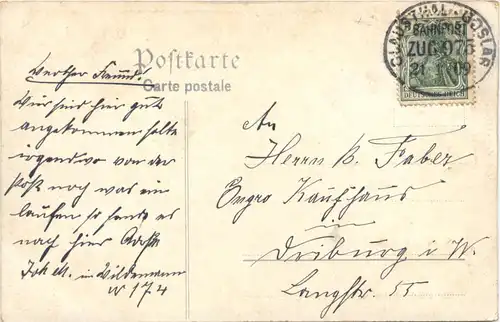 Postkarte
Carte postale
CLAUSTHAL-GOSLAR
BAHNPOST
ZUG 976
21 09
DEUTSCHES REICH
Werther Freund!
Wir sind hier gut
angekommen sollte
irgendwo von der
Post noch was ein
laufen so sende es
nach hier
Joh in Wildemann
N 174
An
Herrn B. Faber
Engro Kaufhaus
in
Driburg i. W.
Langstr. 55